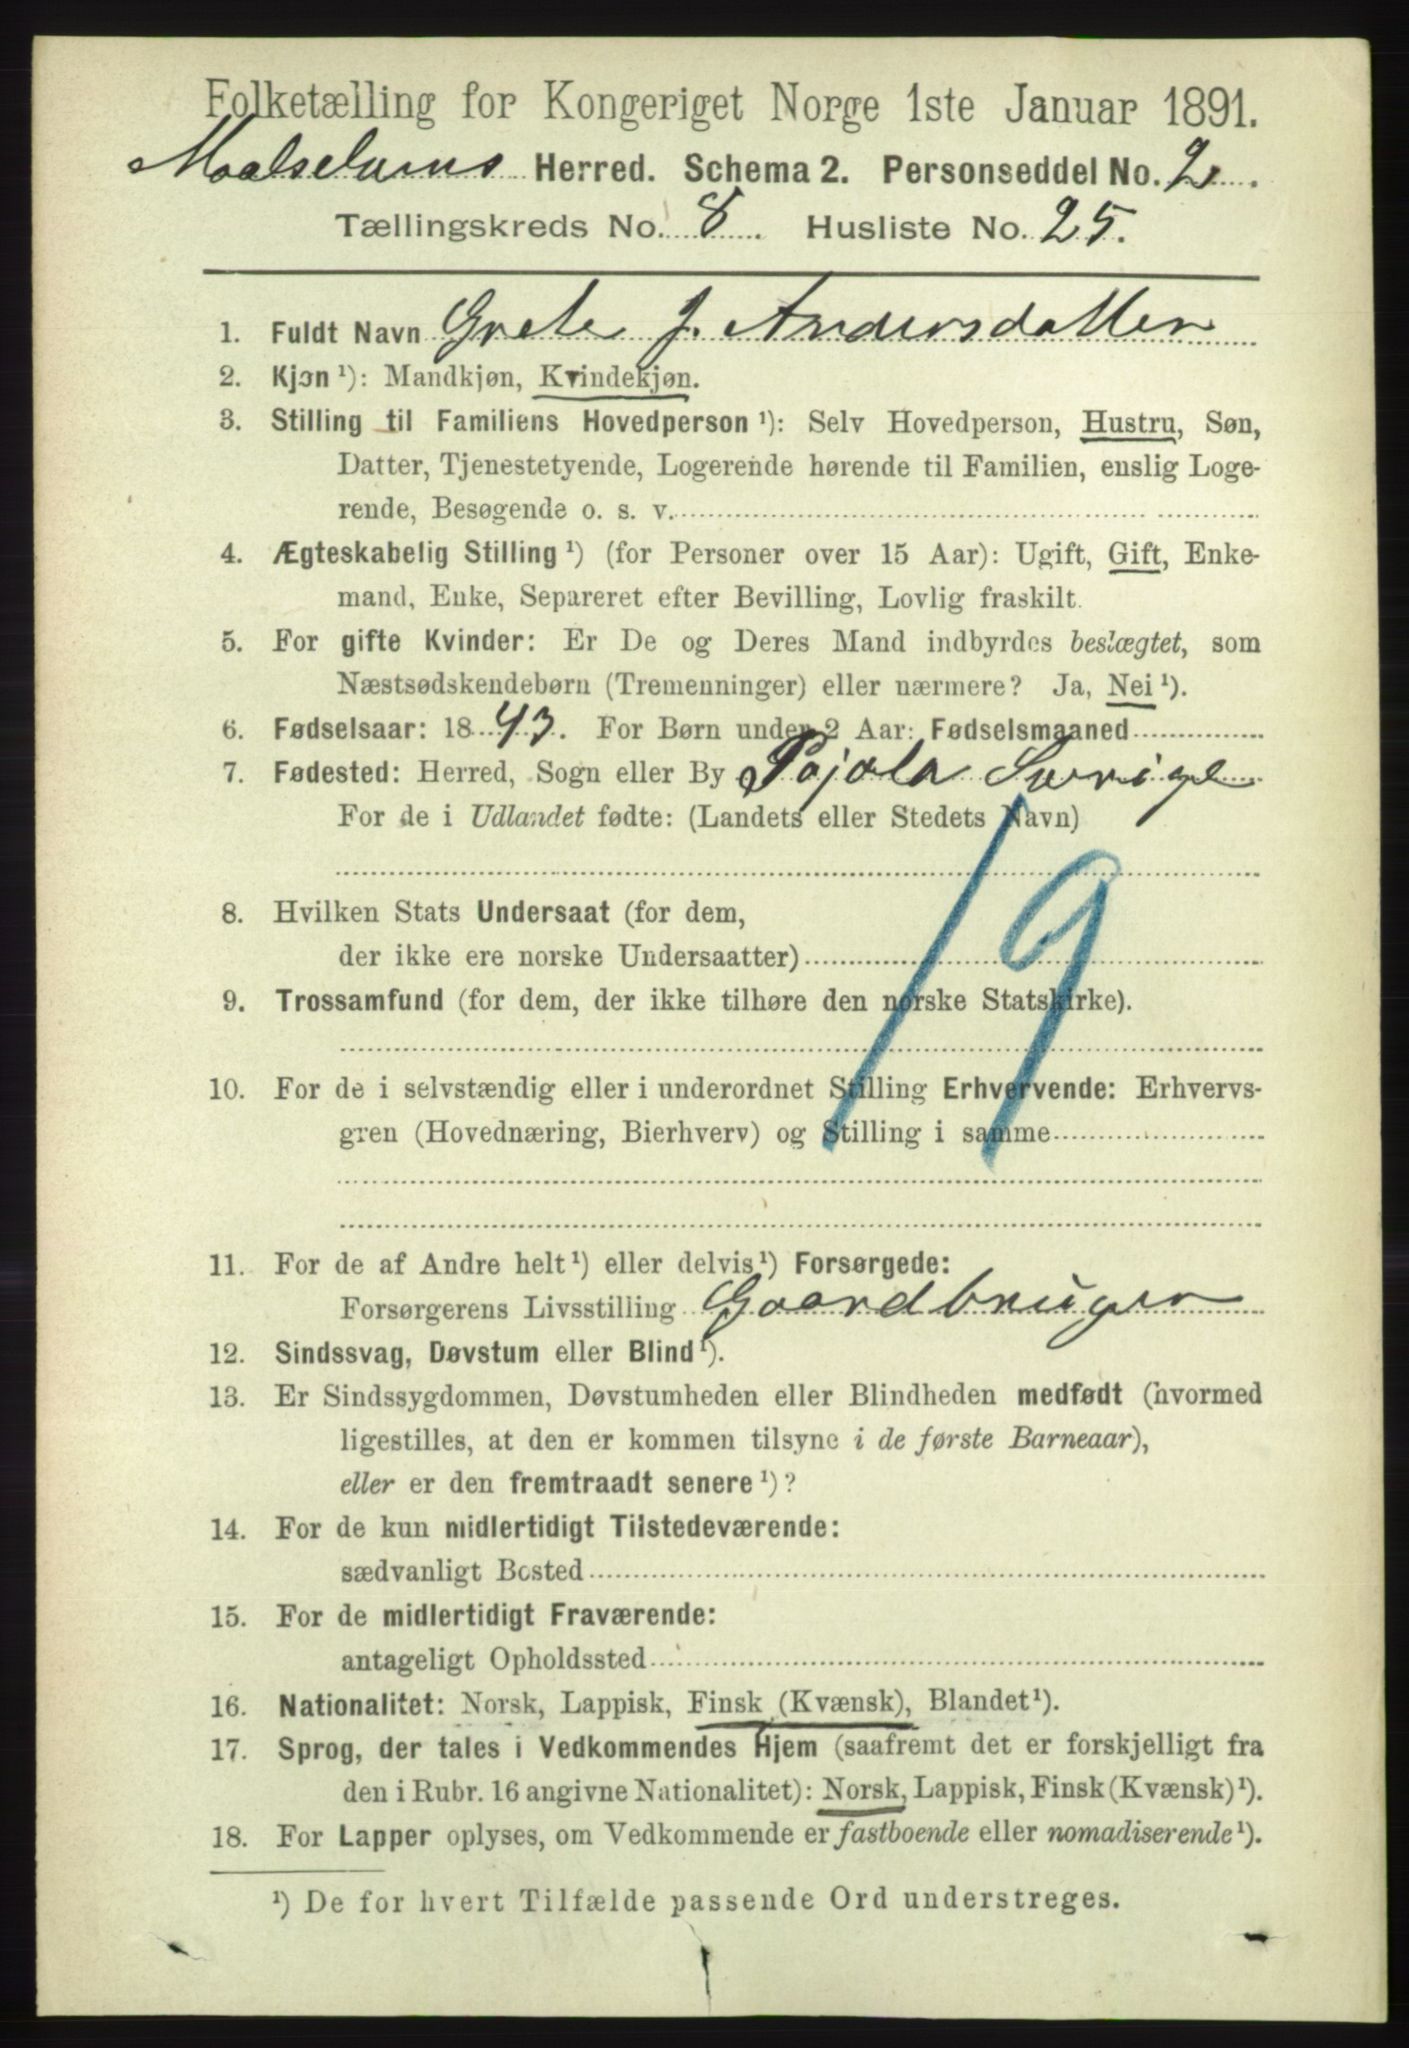 Folketælling for Kongeriget Norge 1ste Januar 1891.
Maalselvens Herred. Schema 2. Personseddel No. 2.
Tællingskreds No. 8. Husliste No. 25.
1. Fuldt Navn Grete J. Andersdatter
2. Kjøn ¹): Mandkjøn, Kvindekjøn.
3. Stilling til Familiens Hovedperson ¹): Selv Hovedperson, Hustru, Søn,
Datter, Tjenestetyende, Logerende hørende til Familien, enslig Loge-
rende, Besøgende o. s. v.
4. Ægteskabelig Stilling ¹) (for Personer over 15 Aar): Ugift, Gift, Enke-
mand, Enke, Separeret efter Bevilling, Lovlig fraskilt.
5. For gifte Kvinder: Er De og Deres Mand indbyrdes beslægtet, som
Næstsødskendebørn (Tremenninger) eller nærmere? Ja, Nei ¹).
6. Fødselsaar: 1843. For Børn under 2 Aar: Fødselsmaaned
7. Fødested: Herred, Sogn eller By Pajala Sverige
For de i Udlandet fødte: (Landets eller Stedets Navn)
19
8. Hvilken Stats Undersaat (for dem,
der ikke ere norske Undersaatter)
9. Trossamfund (for dem, der ikke tilhøre den norske Statskirke).
10. For de i selvstændig eller i underordnet Stilling Erhvervende: Erhvervs-
gren (Hovednæring, Bierhverv) og Stilling i samme
11. For de af Andre helt ¹) eller delvis ¹) Forsørgede:
Forsørgerens Livsstilling Gaardbruger
12. Sindssvag, Døvstum eller Blind ¹).
13. Er Sindssygdommen, Døvstumheden eller Blindheden medfødt (hvormed
ligestilles, at den er kommen tilsyne i de første Barneaar),
eller er den fremtraadt senere ¹)?
14. For de kun midlertidigt Tilstedeværende:
sædvanligt Bosted
15. For de midlertidigt Fraværende:
antageligt Opholdssted
16. Nationalitet: Norsk, Lappisk, Finsk (Kvænsk), Blandet ¹).
17. Sprog, der tales i Vedkommendes Hjem (saafremt det er forskjelligt fra
den i Rubr. 16 angivne Nationalitet): Norsk, Lappisk, Finsk (Kvænsk) ¹).
18. For Lapper oplyses, om Vedkommende er fastboende eller nomadiserende ¹).
¹) De for hvert Tilfælde passende Ord understreges.